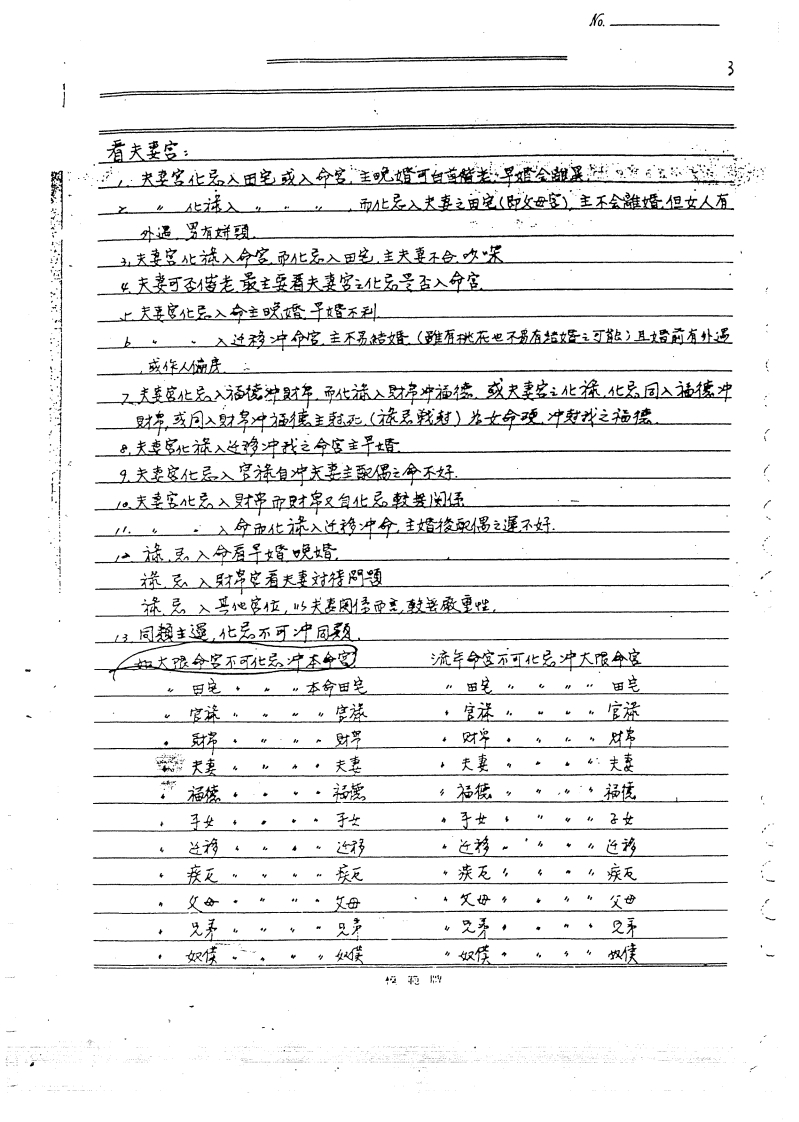 No.
3
看夫妻宮：
1. 夫妻宮化忌入田宅或入命宮，主晚婚可白首偕老，早婚会離異.
2 〃 化祿入 〃 〃 〃，而化忌入夫妻之田宅(即父母宮)，主不会離婚,但女人有
外遇，男有姘頭.
3,夫妻宮化祿入命宮,而化忌入田宅,主夫妻不合.吵
4.夫妻可否偕老,最主要看夫妻宮之化忌是否入命宮.
5.夫妻宮化忌入命主晚婚,早婚不利
6 〃 〃 入迁移冲命宮,主不易結婚.(雖有桃花也不易有結婚之可能)且婚前有外遇
,或作人偏房.
7.夫妻宮化忌入福德冲財帛,而化祿入財帛冲福德.或夫妻宮之化祿,化忌同入福德冲
財帛,或同入財帛冲福德主尅死,(祿忌戰尅)为女命硬,冲尅我之福德.
8.夫妻宮化祿入迁移冲我之命宮主早婚.
9.夫妻宮化忌入官祿自冲夫妻主配偶之命不好.
10.夫妻宮化忌入財帛而財帛又自化忌較無関係
11. 〃 〃 入命而化祿入迁移冲命,主婚後配偶之運不好.
12. 祿,忌入命看早婚,晚婚,
祿,忌入財帛宮看夫妻对待問題
祿,忌 入其他宮位,以夫妻関係而言,較無嚴重性.
13.同類主運,化忌不可冲同類.
如大限命宮不可化忌冲本命宮 流年命宮不可化忌冲大限命宮
〃 田宅 〃 〃 〃本命田宅 〃 田宅 〃 〃 〃 田宅
〃 官祿 〃 〃 〃 〃 官祿 〃 官祿 〃 〃 〃 〃 官祿
〃 財帛 〃 〃 〃 〃 財帛 〃 財帛 〃 〃 〃 〃 財帛
〃 夫妻 〃 〃 〃 〃 夫妻 〃 夫妻 〃 〃 〃 〃 夫妻
〃 福德 〃 〃 〃 〃 福德 〃 福德 〃 〃 〃 〃 福德
〃 子女 〃 〃 〃 〃 子女 〃 子女 〃 〃 〃 〃 子女
〃 迁移 〃 〃 〃 〃 迁移 〃 迁移 〃 〃 〃 〃 迁移
〃 疾厄 〃 〃 〃 〃 疾厄 〃 疾厄 〃 〃 〃 〃 疾厄
〃 父母 〃 〃 〃 〃 父母 〃 父母 〃 〃 〃 〃 父母
〃 兄弟 〃 〃 〃 〃 兄弟 〃 兄弟 〃 〃 〃 〃 兄弟
〃 奴僕 〃 〃 〃 〃 奴僕 〃 奴僕 〃 〃 〃 〃 奴僕
模範牌